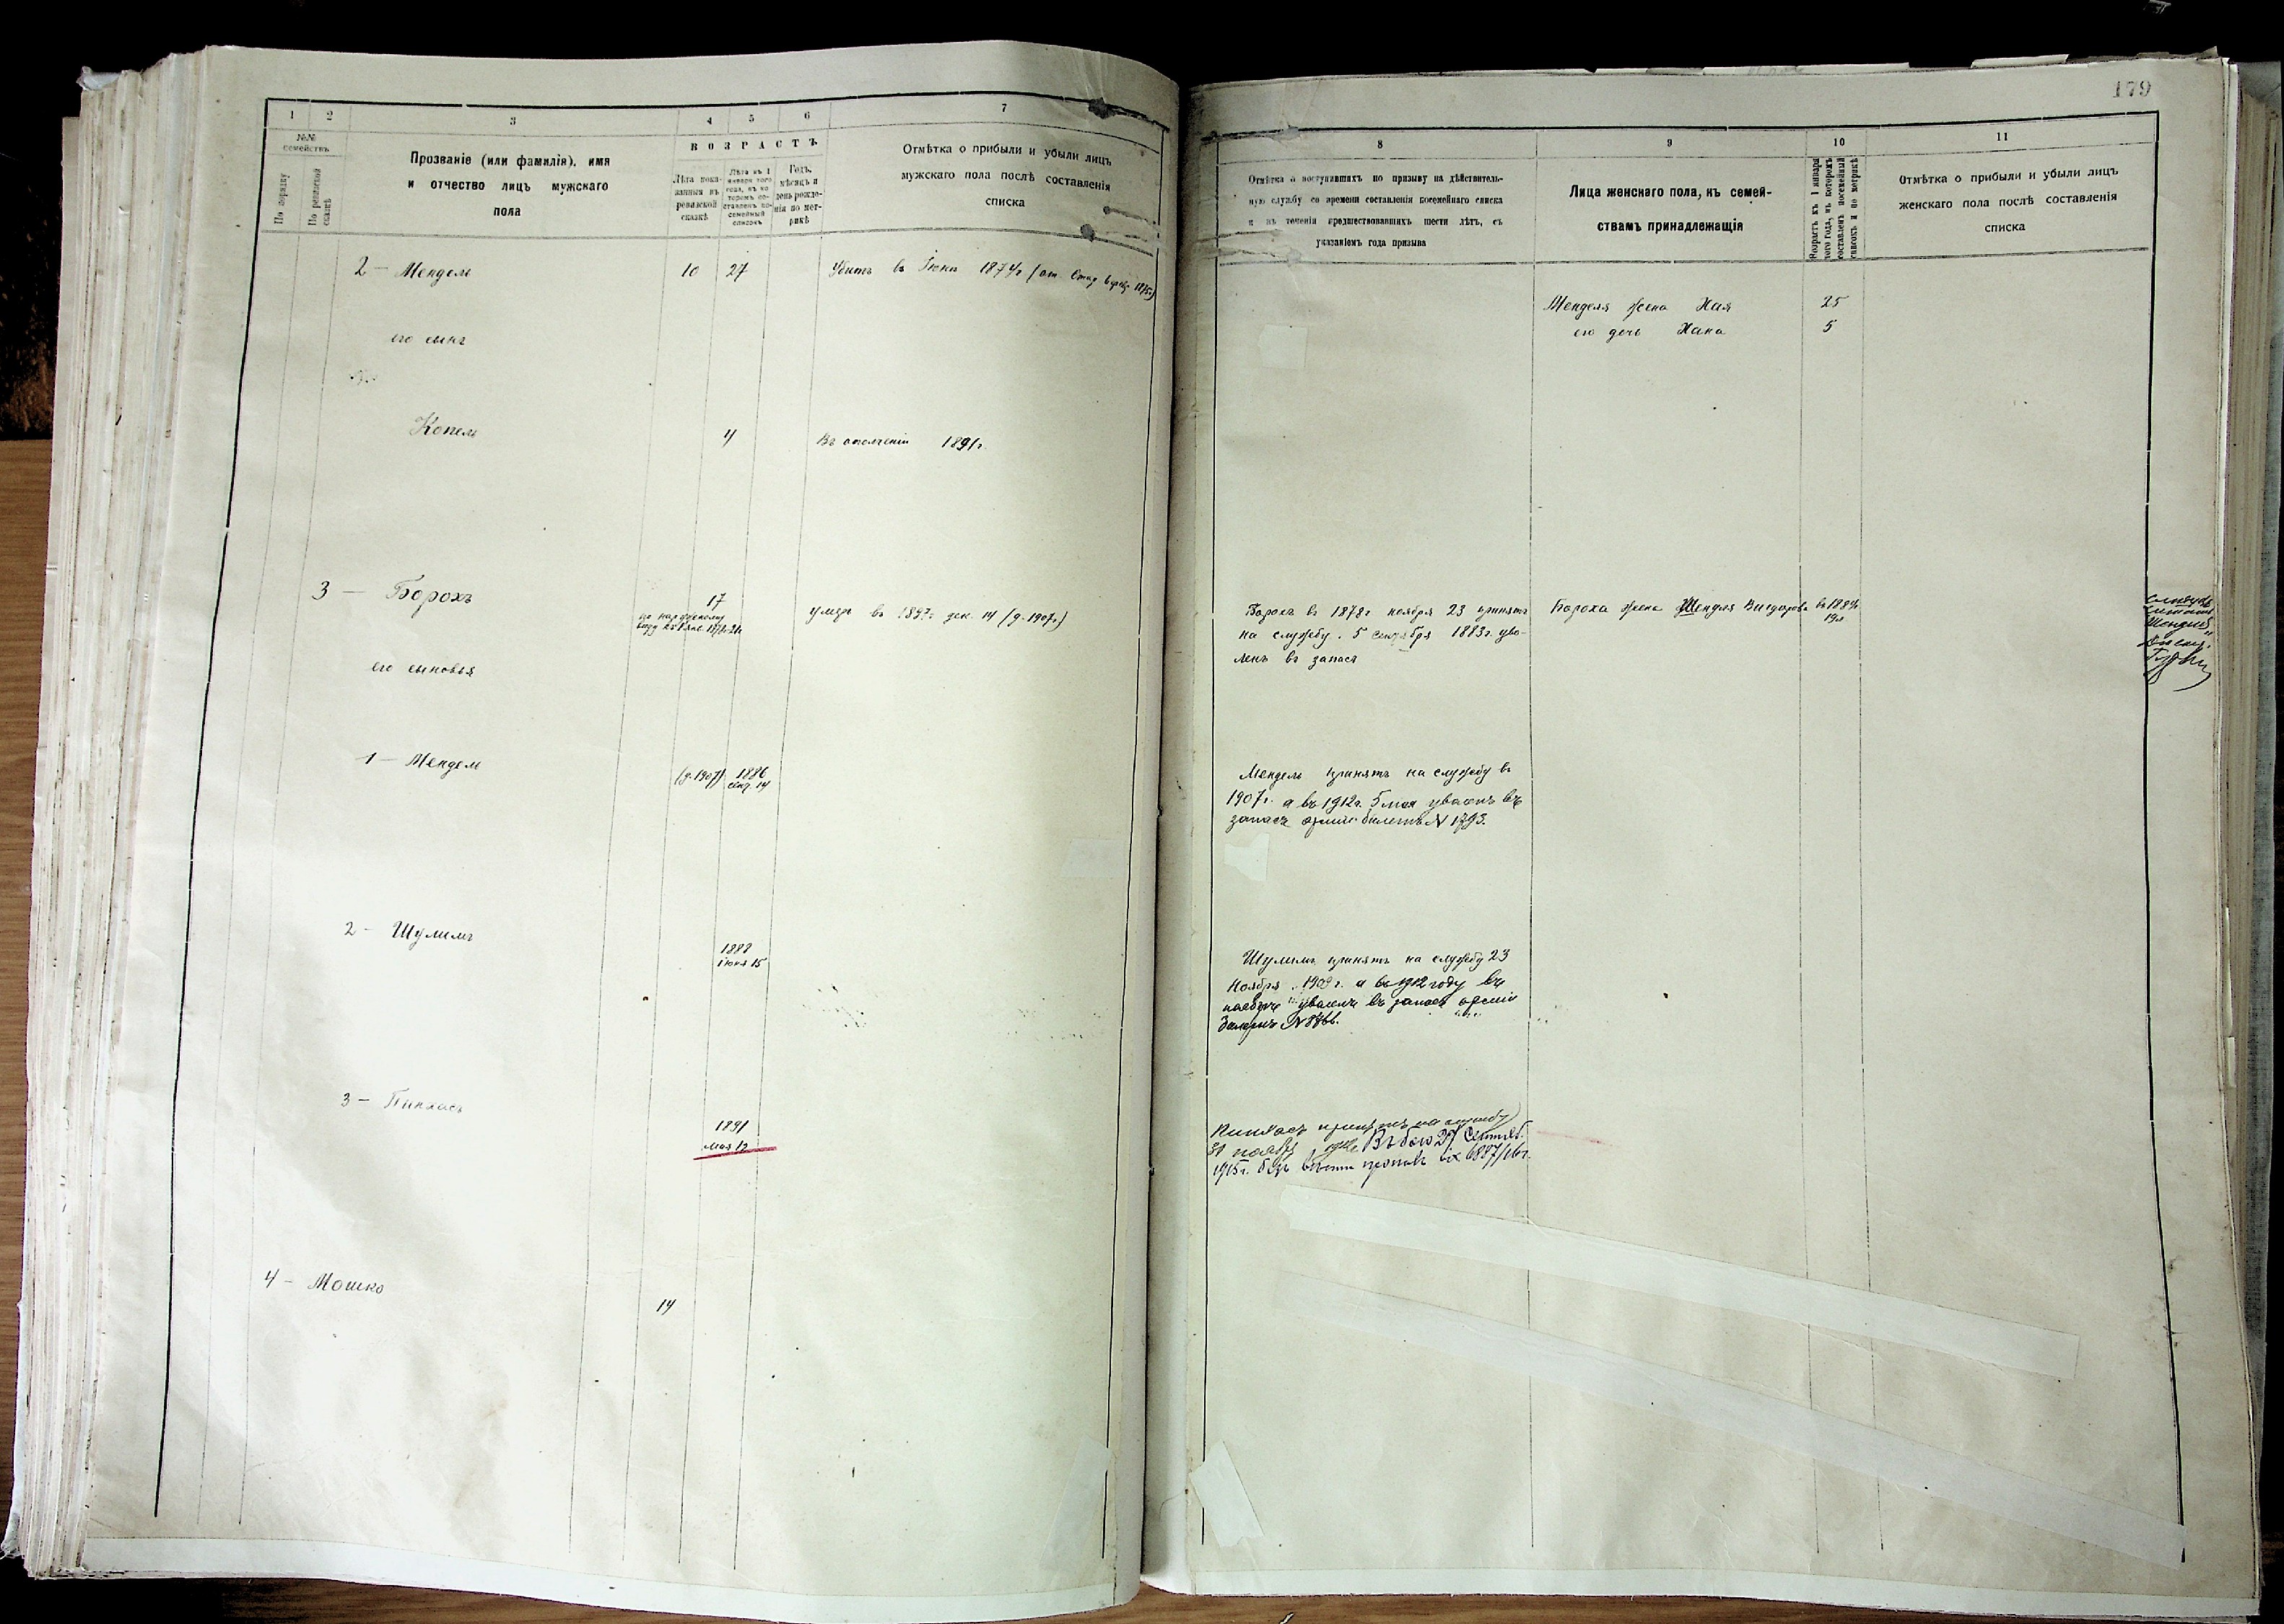 179
1 2 3 4 5 6 7
№№ семействъ
По порядку
По ревизской сказкѣ
Прозваніе (или фамилія), имя
и отчество лицъ мужскаго
пола
ВОЗРАСТЪ
Лѣта пока-
занныя въ
ревизской
сказкѣ
Лѣта къ 1
января того
года, въ ко-
торомъ со-
ставленъ по-
семейный
списокъ
Годъ,
мѣсяцъ и
день рожде-
нія по мет-
рикѣ
Отмѣтка о прибыли и убыли лицъ
мужскаго пола послѣ составленія
списка
2 — Мендель 10 27 Убитъ въ Іюнѣ 1874г
его сынъ
Копель 4 Въ ополченіи 1891г.
3 — Борохъ 17 умеръ въ дек. 14 (д. 1907г.)
по наружному
виду
его сыновья
1 — Мендель (д. 1907) 1886
сент. 14
2 — Шулимъ 1888
іюня 15
3 — Пинхасъ 1891
мая 12
4 — Мошко 14
8 9 10 11
Отмѣтка о поступившихъ по призыву на дѣйствитель-
ную службу со времени составленія посемейнаго списка
и въ теченіи предшествовавшихъ шести лѣтъ, съ
указаніемъ года призыва
Лица женскаго пола, къ семей-
ствамъ принадлежащія
Возрастъ къ 1 января
того года, въ которомъ
составленъ посемейный
списокъ и по метрикѣ
Отмѣтка о прибыли и убыли лицъ
женскаго пола послѣ составленія
списка
Менделя жена Хая 25
его дочь Хана 5
Борохъ въ 1878г ноября 23 принятъ
на службу. 5 сентября 1883г. уво-
ленъ въ запасъ
Бороха жена Шендля
19л
Мендель принятъ на службу въ
1907г. а въ 1912г. 5 мая уволенъ въ
запасъ арміи билетъ № 1793.
Шулимъ принятъ на службу 23
Ноября 1909г. а въ 1912 году въ
ноябрѣ уволенъ въ запасъ арміи
билетъ №
Пинхасъ принятъ на службу
ноября Въ бою 29 Сентяб.
1915г. безъ вѣсти пропалъ